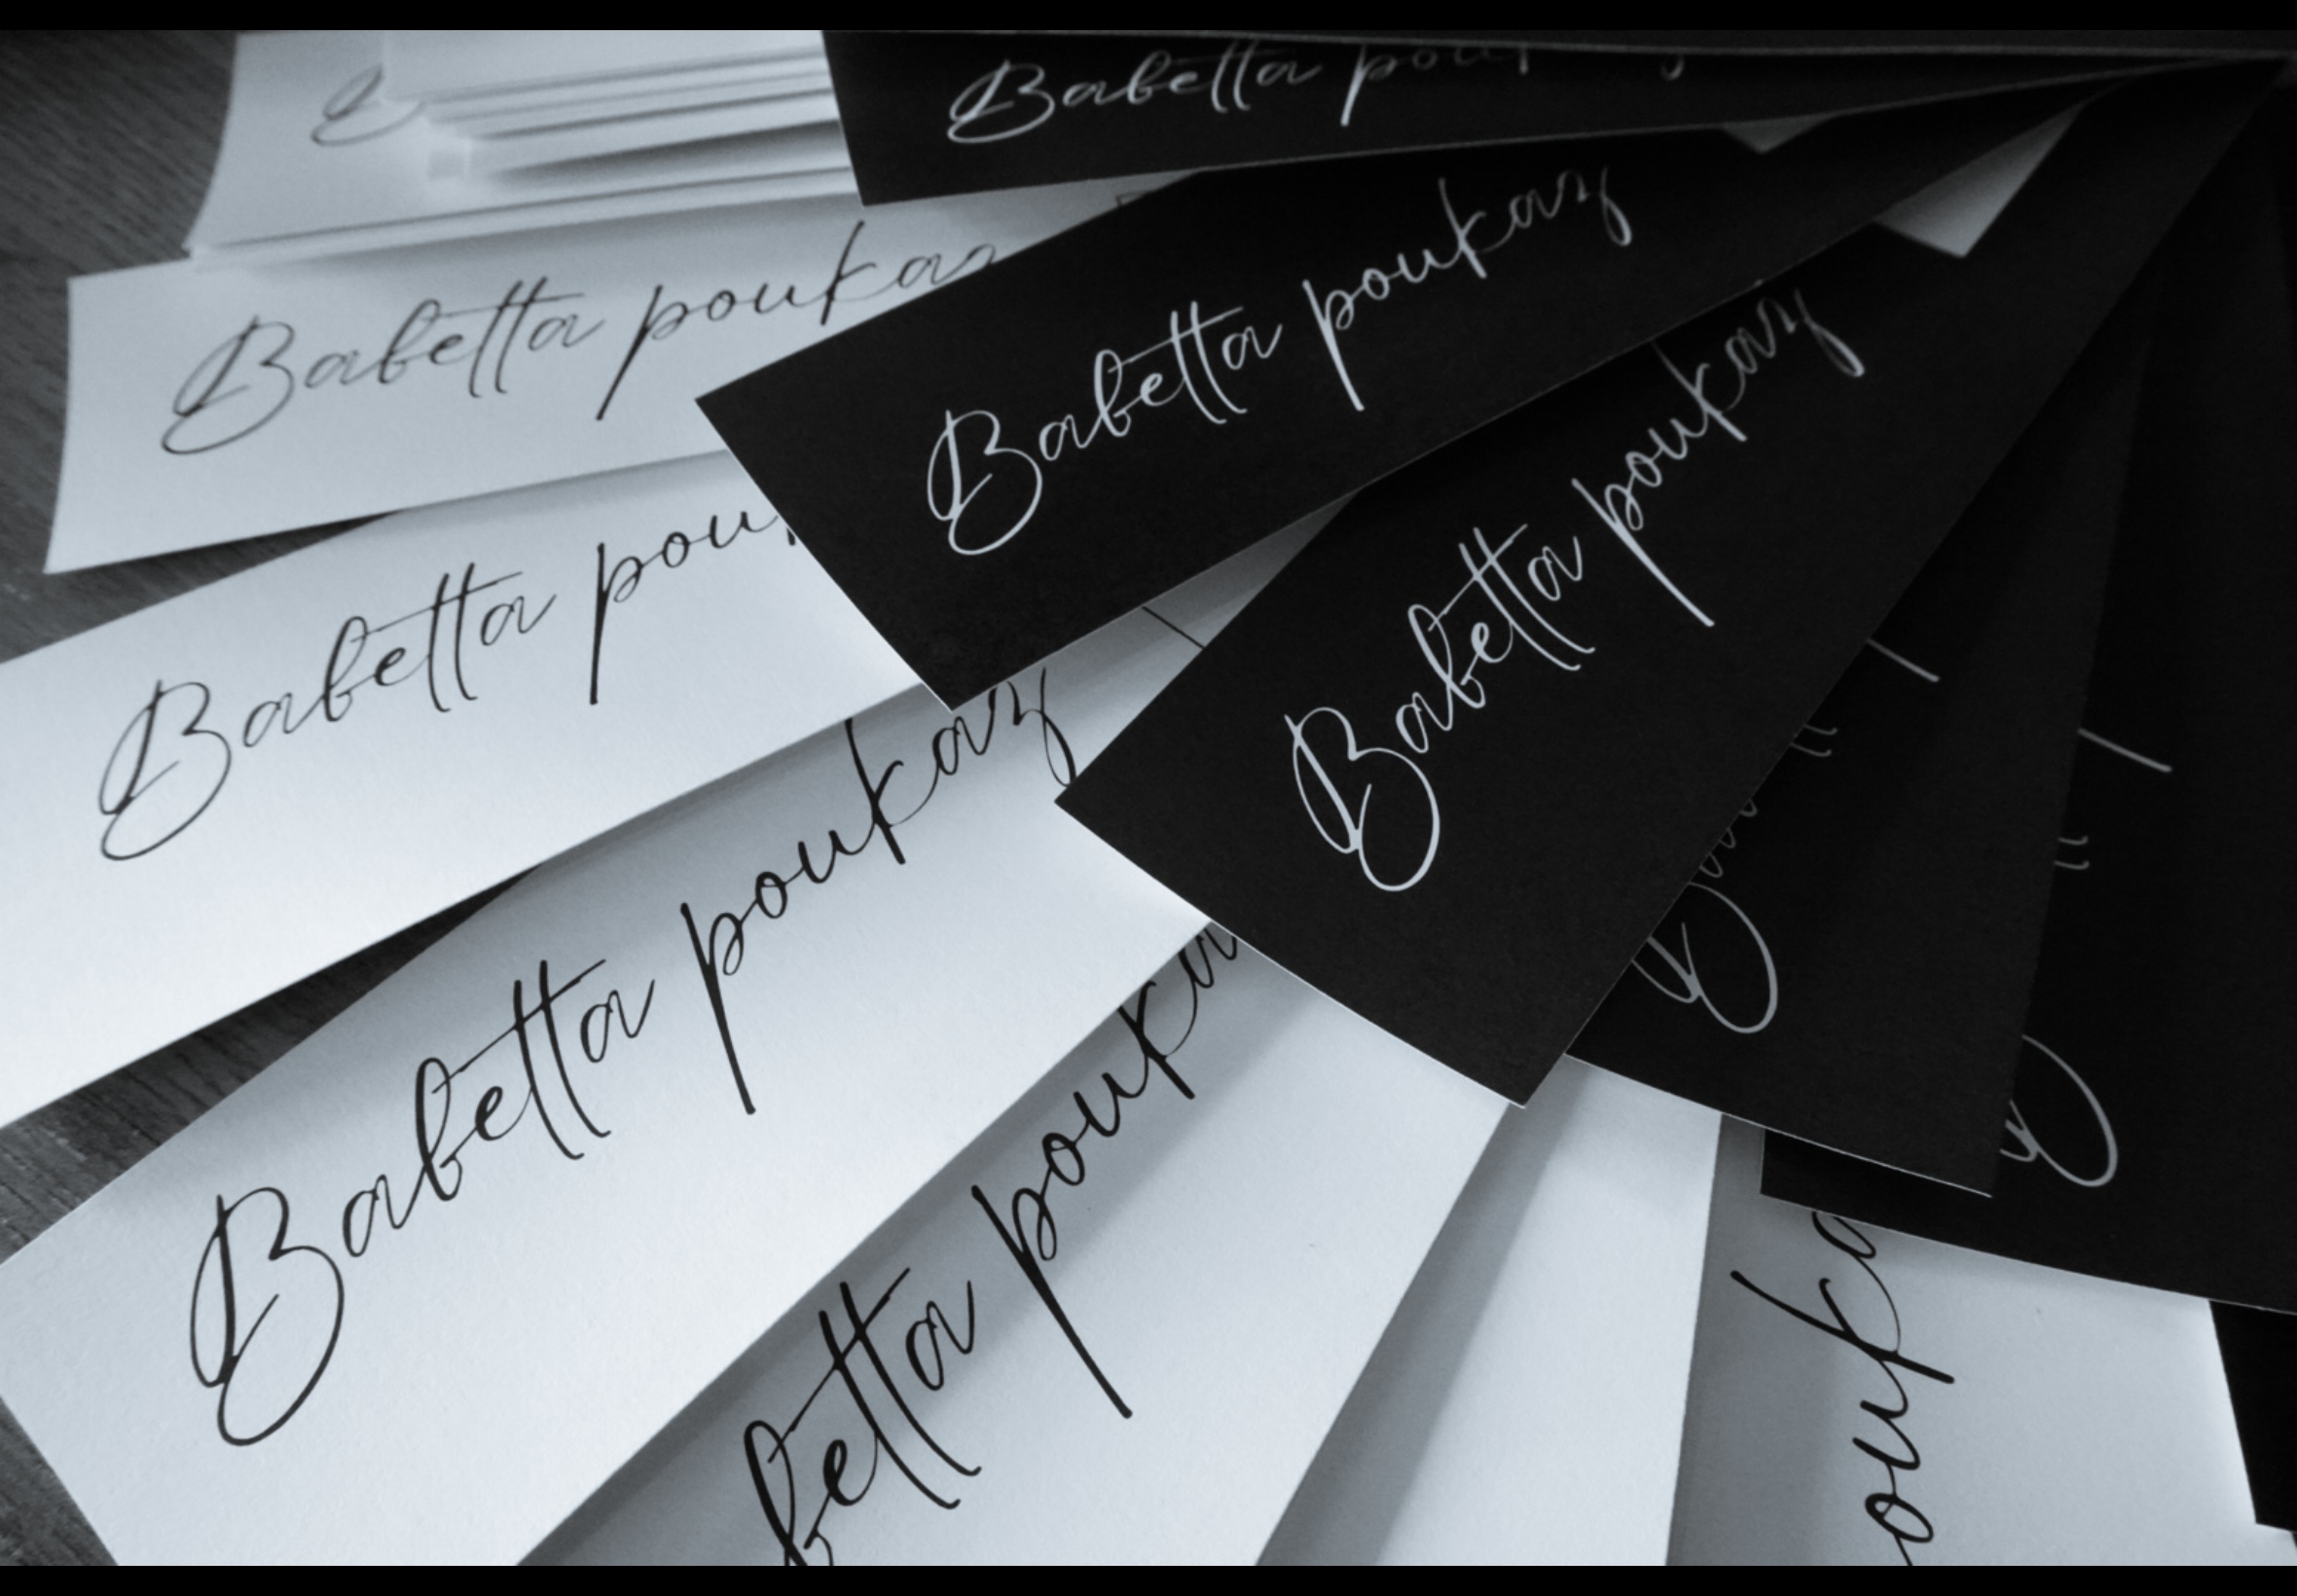 Babetta pou
Babetta poukaz
Babetta poukaz
Babetta pou
Babetta poukaz
Babetta poukaz
betta pouka
ouka